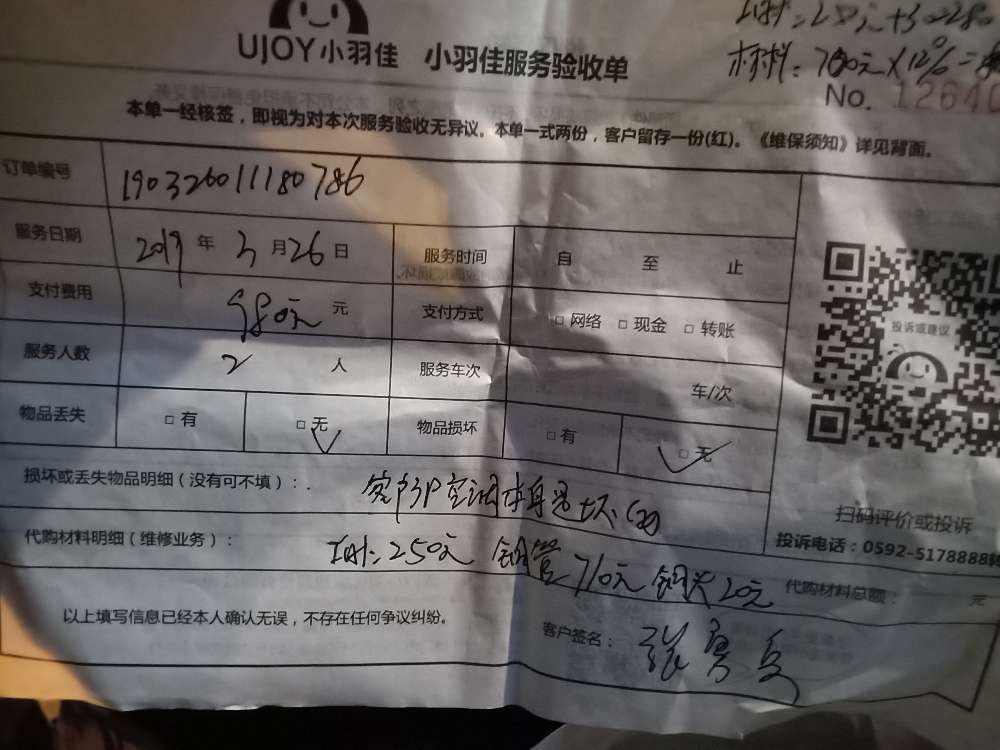 UJOY小羽佳 小羽佳服务验收单
材料:700元×12%=
No. 12640
本单一经核签，即视为对本次服务验收无异议。本单一式两份，客户留存一份(红)。《维保须知》详见背面。
订单编号 190326011180786
服务日期 2019 年 3 月 26 日 服务时间 自 至 止
支付费用 980元 元 支付方式 □ 网络 □ 现金 □ 转账
投诉或建议
服务人数 2 人 服务车次 车/次
物品丢失 □ 有 □ 无 物品损坏 □ 有 □ 无
损坏或丢失物品明细（没有可不填）： 客户3P空调本身是坏
扫码评价或投诉
投诉电话：0592-5178888转
代购材料明细（维修业务）： 工时:250元 铜管710元 铜头20元 代购材料总额： 元
以上填写信息已经本人确认无误，不存在任何争议纠纷。
客户签名：